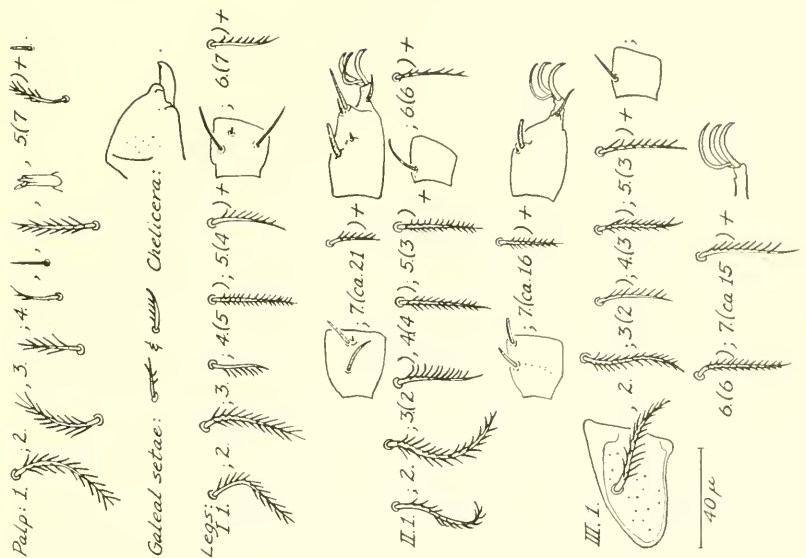 Palp: 1. , 2. , 3. , 4. , , , 5.(7 )+ .
Galeal setae: & Chelicera: .
Legs:
I 1. ; 2. ; 3. ; 4.(5 ); 5.(4 )+ ; 6.(7 )+
; 7.(ca.21 )+
II.1. ; 2. ; 3(2 ), 4(4 ), 5.(3 )+ ; 6(6 )+
; 7(ca.16 )+
III.1. , 2. ; 3(2 ); 4.(3 ); 5.(3 )+ ;
6.(6 ); 7.(ca 15 )+
40 µ